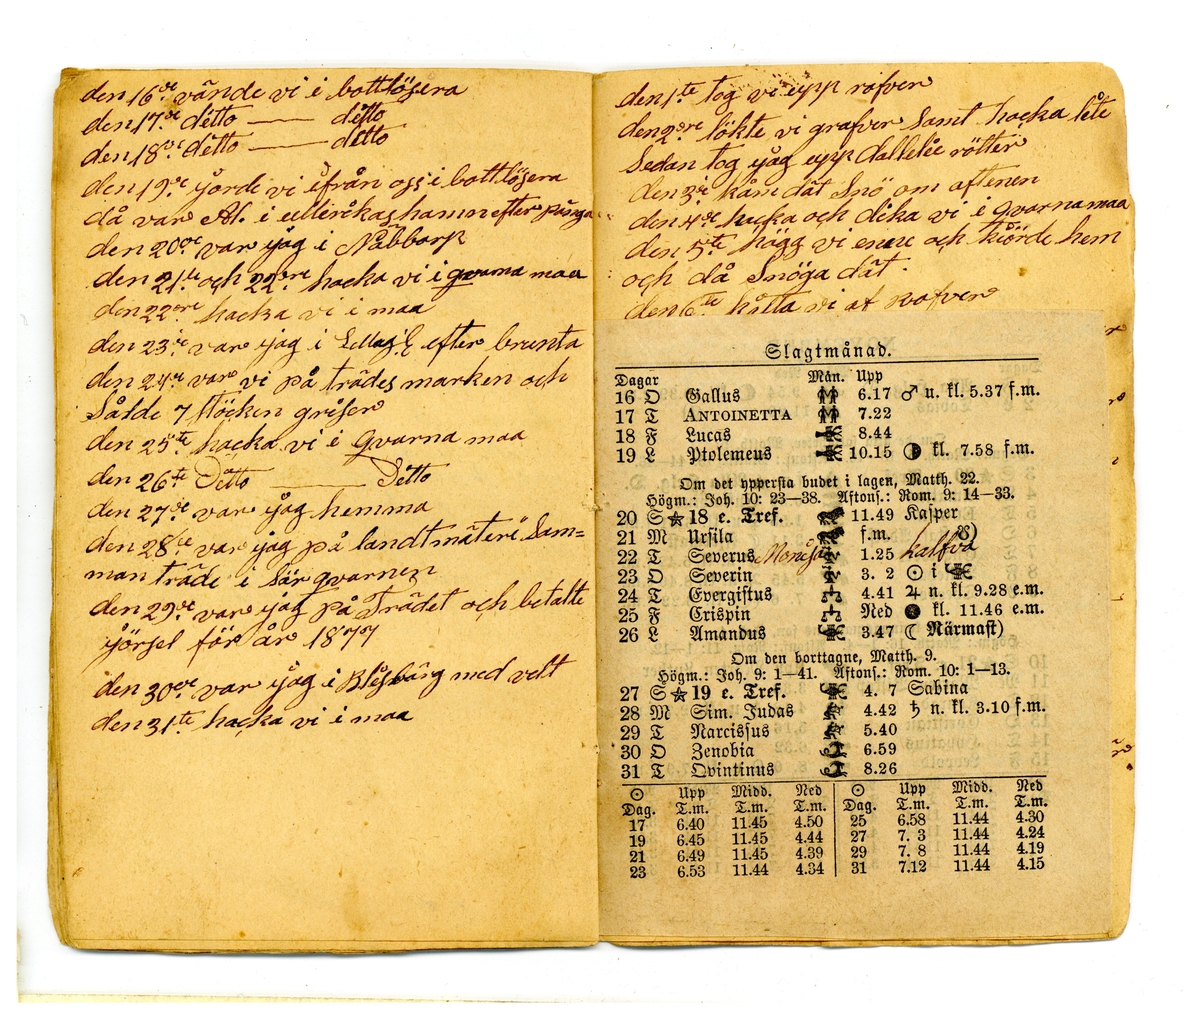 den 16de vände vi i bottlösera
den 17de detto — detto
den 18de detto — detto
den 19de jorde vi ifrån oss i bottlösera
då var Al. i hamn efter pänga
den 20de var jag i Nabbarp
den 21te och 22dre hacka vi i gvarna maa
den 22dre hacka vi i maa
den 23de var jag i efter brunta
den 24de var vi på trädes marken och
Sålde 7 stöcken griser
den 25te hacka vi i gvarna maa
den 26te Detto — Detto
den 27de var jag hemma
den 28de var jag på landtmäteri Sam=
man träde i Sär gvarnen
den 29de var jag på Trädet och betalte
jörsel för år 1877
den 30de var jag i Blåsbärg med velt
den 31te hacka vi i maa
den 1te tog vi upp rofver
den 2dre lökte vi grafver Samt hacka lete
Sedan tog jag upp dallelie rötter
den 3de kåm dät Snö om aftenen
den 4de hacka och dika vi i gvarna maa
den 5te högg vi enne och kiörde hem
och då Snöga dät.
den 6te vi af rofver
Slagtmånad.
Dagar Mån. Upp
16 O Gallus 6.17 ♂ u. kl. 5.37 f.m.
17 T ANTOINETTA 7.22
18 F Lucas 8.44
19 L Ptolemeus 10.15 ◑ kl. 7.58 f.m.
Om det yppersta budet i lagen, Matth. 22.
Högm.: Joh. 10: 23—38. Aftons.: Rom. 9: 14—33.
20 S ☆ 18 e. Tref. 11.49 Kasper
21 M Ursila f.m.
22 T Severus 1.25 kalfva
23 O Severin 3. 2 ☉ i
24 T Evergistus 4.41 ♃ n. kl. 9.28 e.m.
25 F Crispin Ned ● kl. 11.46 e.m.
26 L Amandus 3.47 ☾ Närmast)
Om den borttagne, Matth. 9.
Högm.: Joh. 9: 1—41. Aftons.: Rom. 10: 1—13.
27 S ☆ 19 e. Tref. 4. 7 Sabina
28 M Sim. Judas 4.42 ♄ n. kl. 3.10 f.m.
29 T Narcissus 5.40
30 O Zenobia 6.59
31 T Qvintinus 8.26
☉ Upp Midd. Ned ☉ Upp Midd. Ned
Dag. T.m. T.m. T.m. Dag. T.m. T.m. T.m.
17 6.40 11.45 4.50 25 6.58 11.44 4.30
19 6.45 11.45 4.44 27 7. 3 11.44 4.24
21 6.49 11.45 4.39 29 7. 8 11.44 4.19
23 6.53 11.44 4.34 31 7.12 11.44 4.15